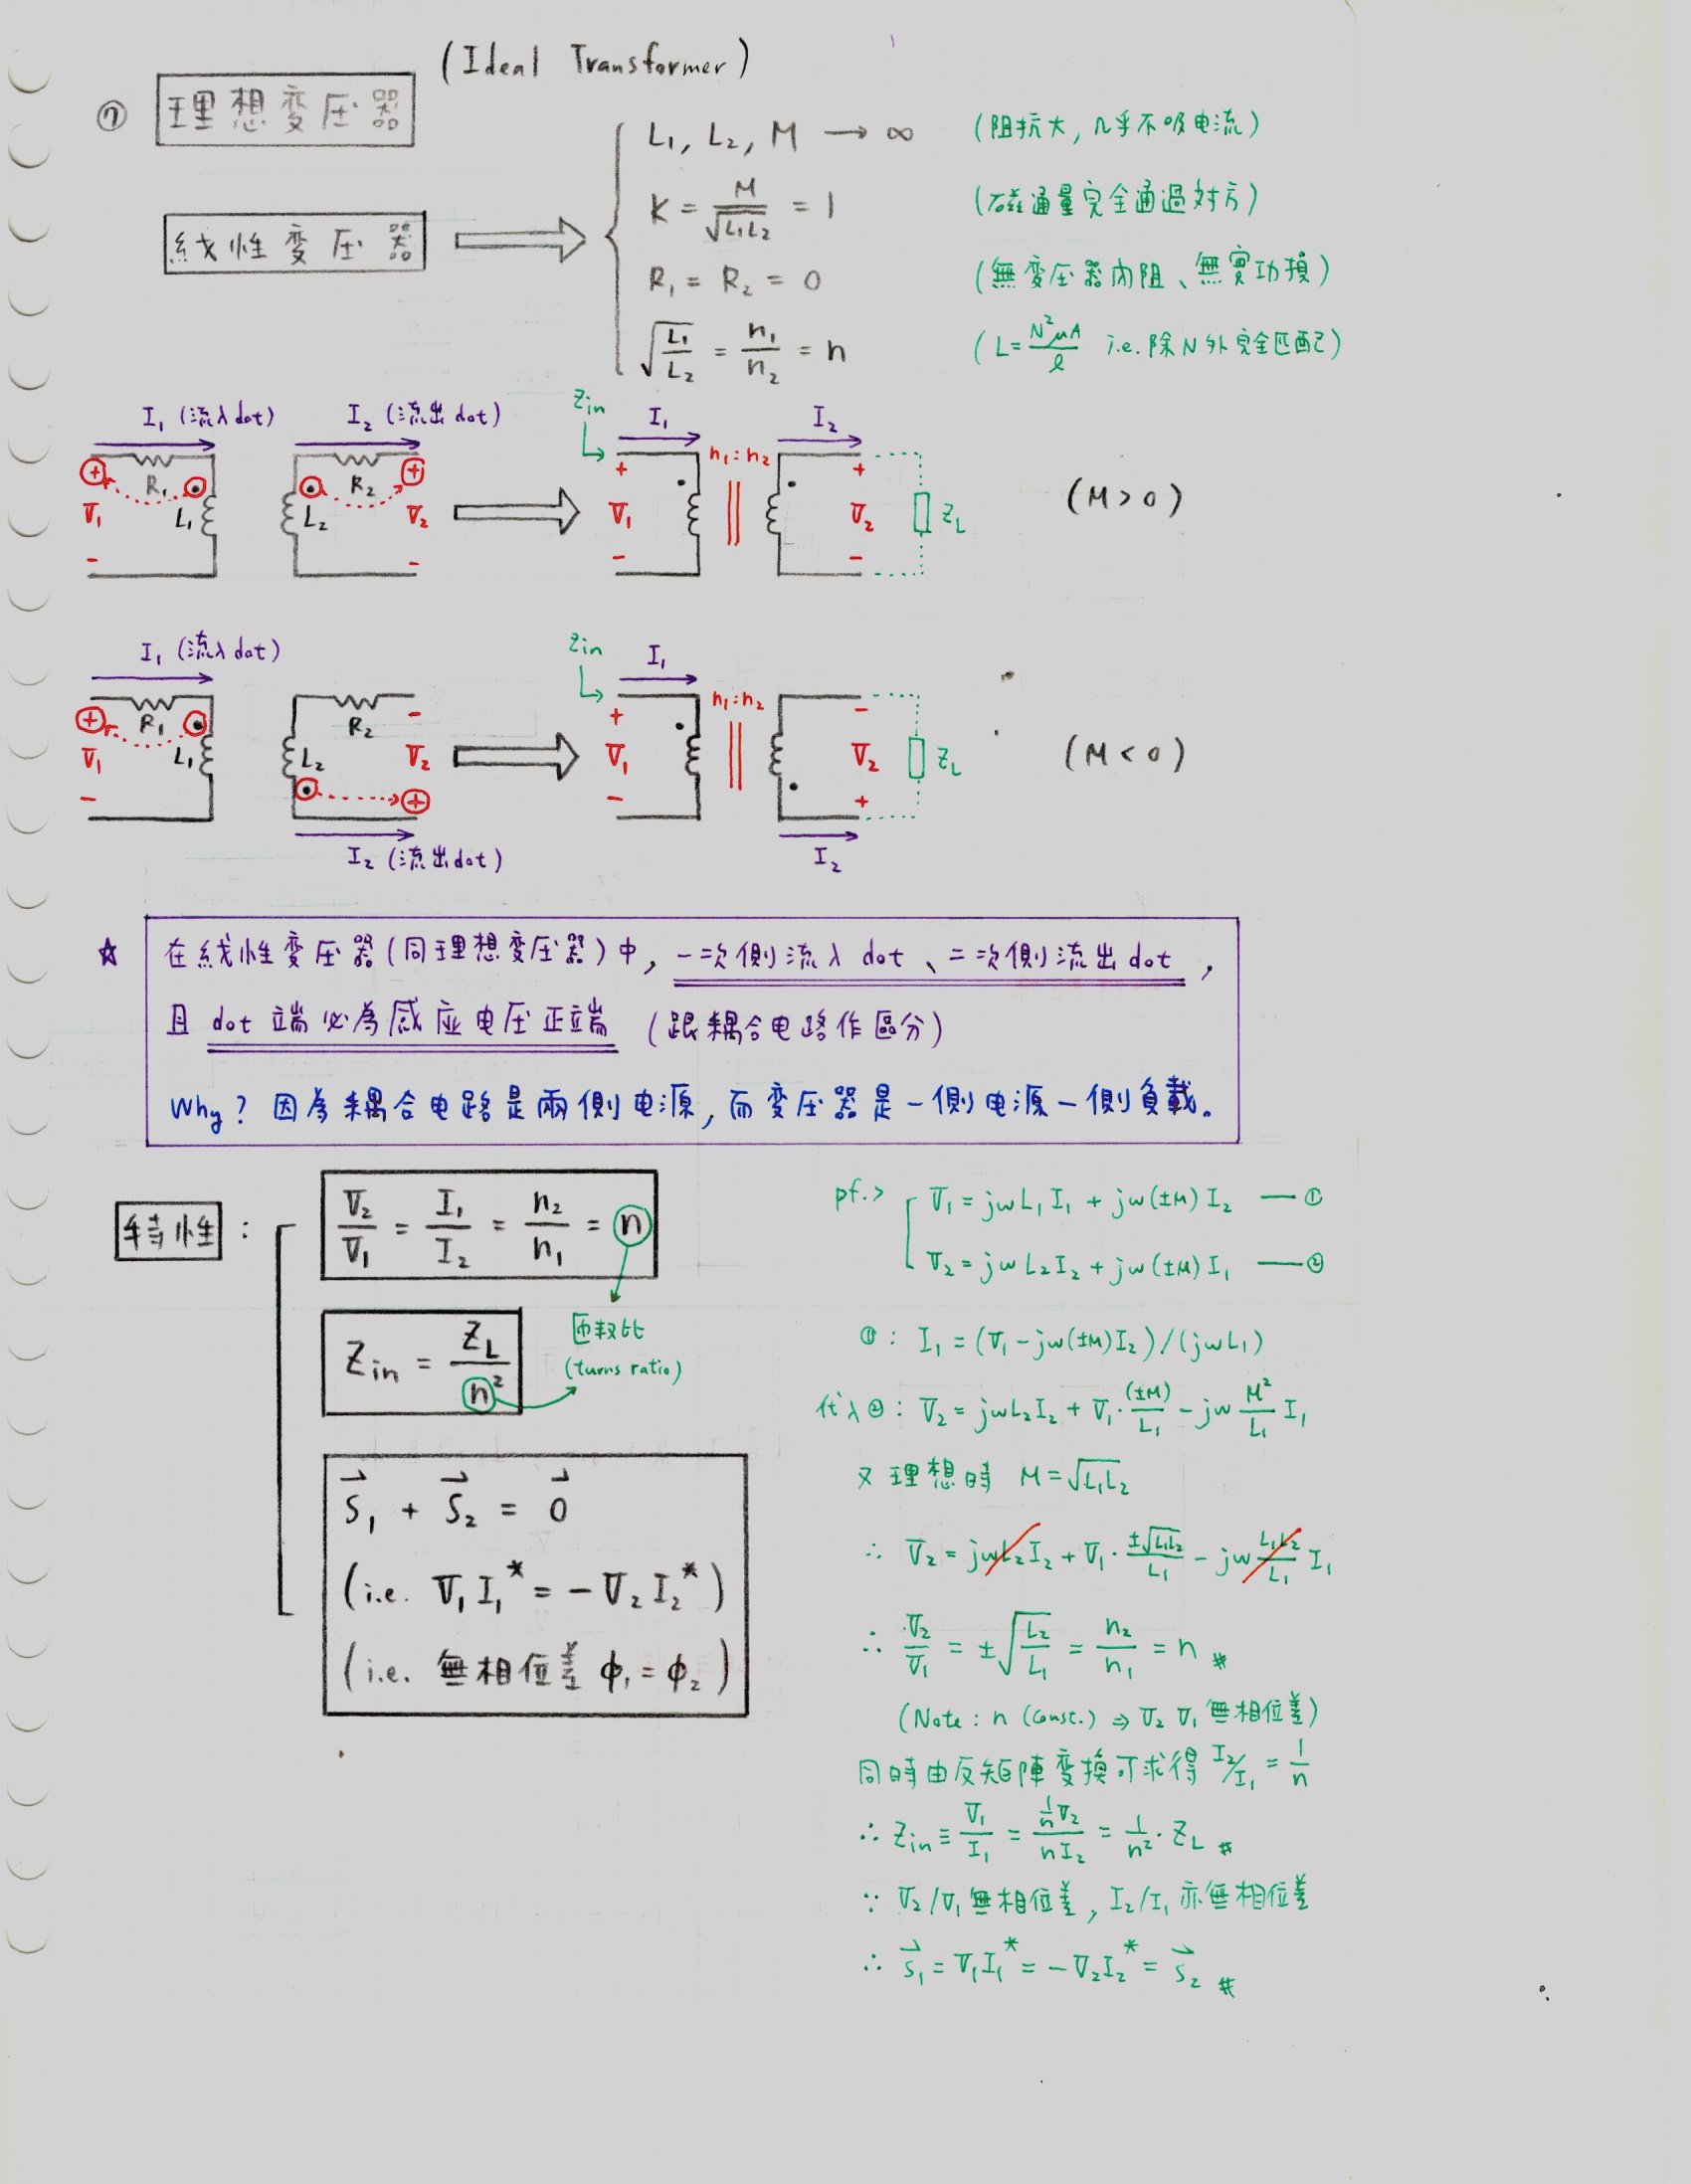 (Ideal Transformer)
⑦ 理想変圧器
L₁, L₂, M → ∞ (阻抗大, 几乎不吸电流)
線性変圧器 ⇒ K = M/√(L₁L₂) = 1 (磁通量完全通過対方)
R₁ = R₂ = 0 (無変圧器內阻、無實功損)
√(L₁/L₂) = n₁/n₂ = n (L = N²μA/ℓ i.e. 除N外完全匹配)
I₁ (流入dot) I₂ (流出dot) Zin I₁ I₂
+ R₁ R₂ + + n₁:n₂ +
V₁ L₁ L₂ V₂ V₁ V₂ ZL (M > 0)
− − − −
I₁ (流入dot) Zin I₁
+ R₁ R₂ − + n₁:n₂ −
V₁ L₁ L₂ V₂ V₁ V₂ ZL (M < 0)
− + − +
I₂ (流出dot) I₂
☆ 在線性変圧器(同理想変圧器)中, 一次側流入 dot、二次側流出 dot,
且 dot 端必為感应电压正端 (跟耦合电路作區分)
Why? 因為耦合电路是兩側电源, 而変圧器是一側电源一側負載。
特性:
V₂/V₁ = I₁/I₂ = n₂/n₁ = n
匝数比
(turns ratio)
Zin = ZL/n²
S⃗₁ + S⃗₂ = 0⃗
(i.e. V₁I₁* = −V₂I₂*)
(i.e. 無相位差 φ₁ = φ₂)
pf.> V₁ = jωL₁I₁ + jω(±M)I₂ — ①
V₂ = jωL₂I₂ + jω(±M)I₁ — ②
①: I₁ = (V₁ − jω(±M)I₂)/(jωL₁)
代入②: V₂ = jωL₂I₂ + V₁·(±M)/L₁ − jω M²/L₁ I₁
又理想時 M = √L₁L₂
∴ V₂ = jωL₂I₂ + V₁·±√L₁L₂/L₁ − jω L₁L₂/L₁ I₁
∴ V₂/V₁ = ±√(L₂/L₁) = n₂/n₁ = n #
(Note: n (const.) ⇒ V₂ V₁ 無相位差)
同時由反矩陣変換可求得 I₂/I₁ = 1/n
∴ Zin ≡ V₁/I₁ = (1/n)V₂/(nI₂) = 1/n²·ZL #
∵ V₂/V₁ 無相位差, I₂/I₁ 亦無相位差
∴ S⃗₁ = V₁I₁* = −V₂I₂* = S⃗₂ #